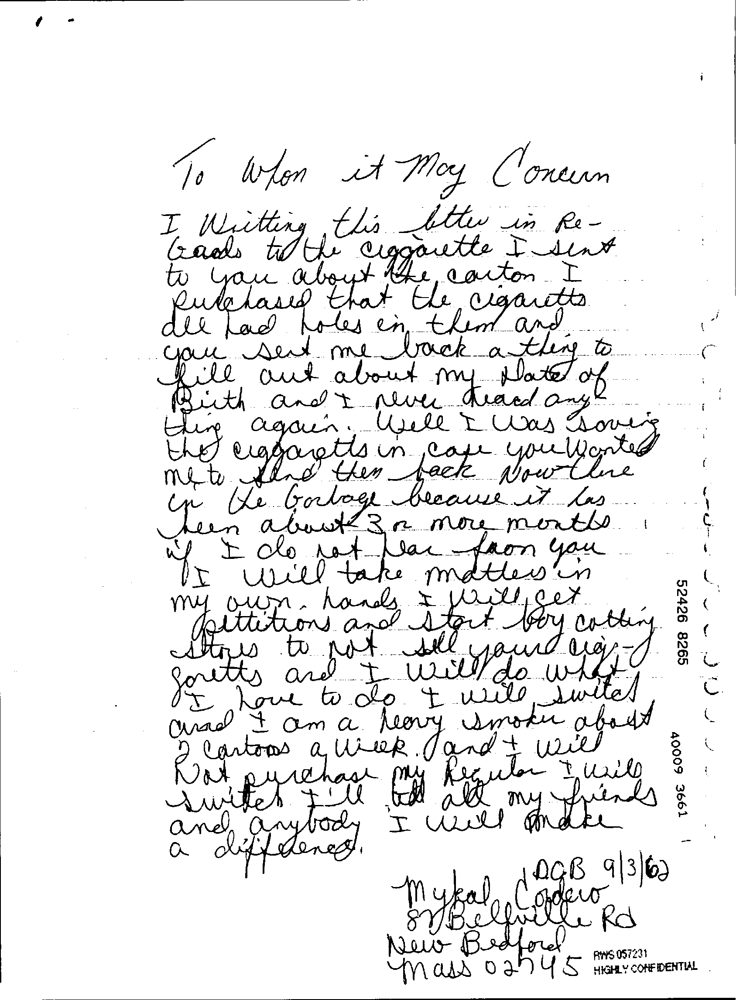 To Whon it May Concern
I Writting this letter in Re-
gaads to the ciggarette I sent
to you about the carton I
purchased that the cigaretts
all had holes in them and
you sent me back a thing to
fill out about my Date of
Birth and I never heard any
thing again. Well I was saving
the ciggaretts in case you Wanted
me to send then back Now there
in the Garbage because it has
been about 3 or more months
if I do not hear from you
I will take matters in
my own hands I will get
pettitions and start boy cotting
stores to not sell your cig-
garetts and I will do what
I have to do I will switch
and I am a heavy smoker about
2 cartons a week. and I will
Not purchase my Regular I will
switch I'll tell all my friends
and anybody I will make
a difference.
DOB 9/3/62
Mykal Cordero
Bellville Rd
New Bedford
Mass 02745
RWS 057231
HIGHLY CONFIDENTIAL
52426 8265
40009 3661